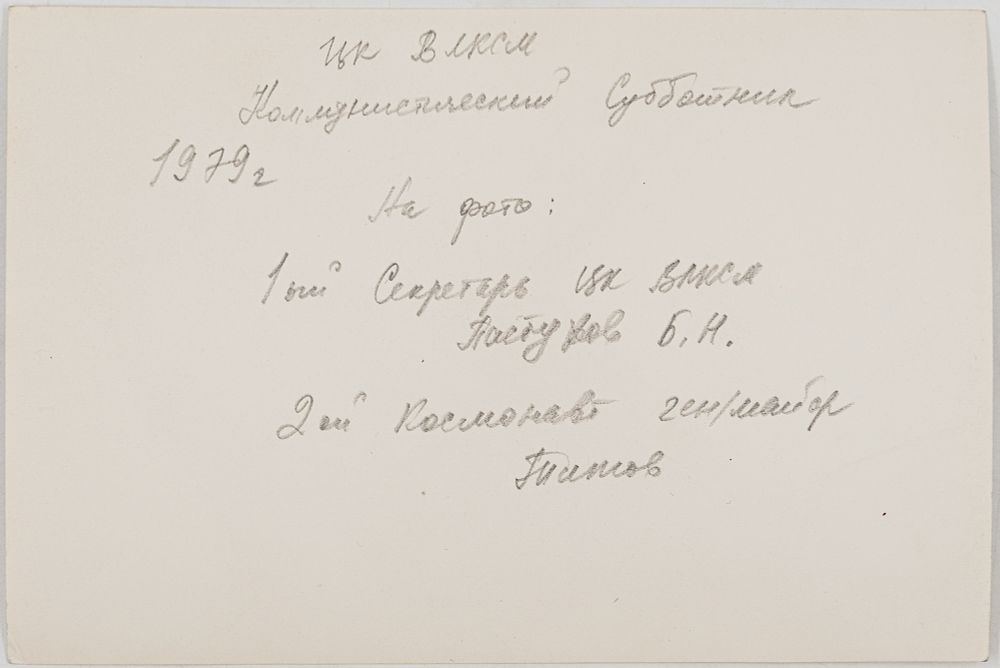 ЦК ВЛКСМ
Коммунистический Субботник
1979г
На фото:
1ый Секретарь ЦК ВЛКСМ
Пастухов Б.Н.
2ой Космонавт ген/майор
Титов